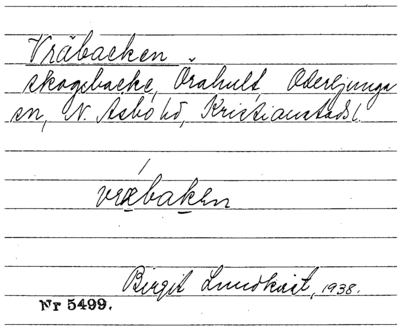 Vräbacken
skogsbacke, Örahult Oderljunga
sn, N. Åsbo hd, Kristianstads l.
vræbaken
Birgit Lundkvist, 1938.
Nr 5499.